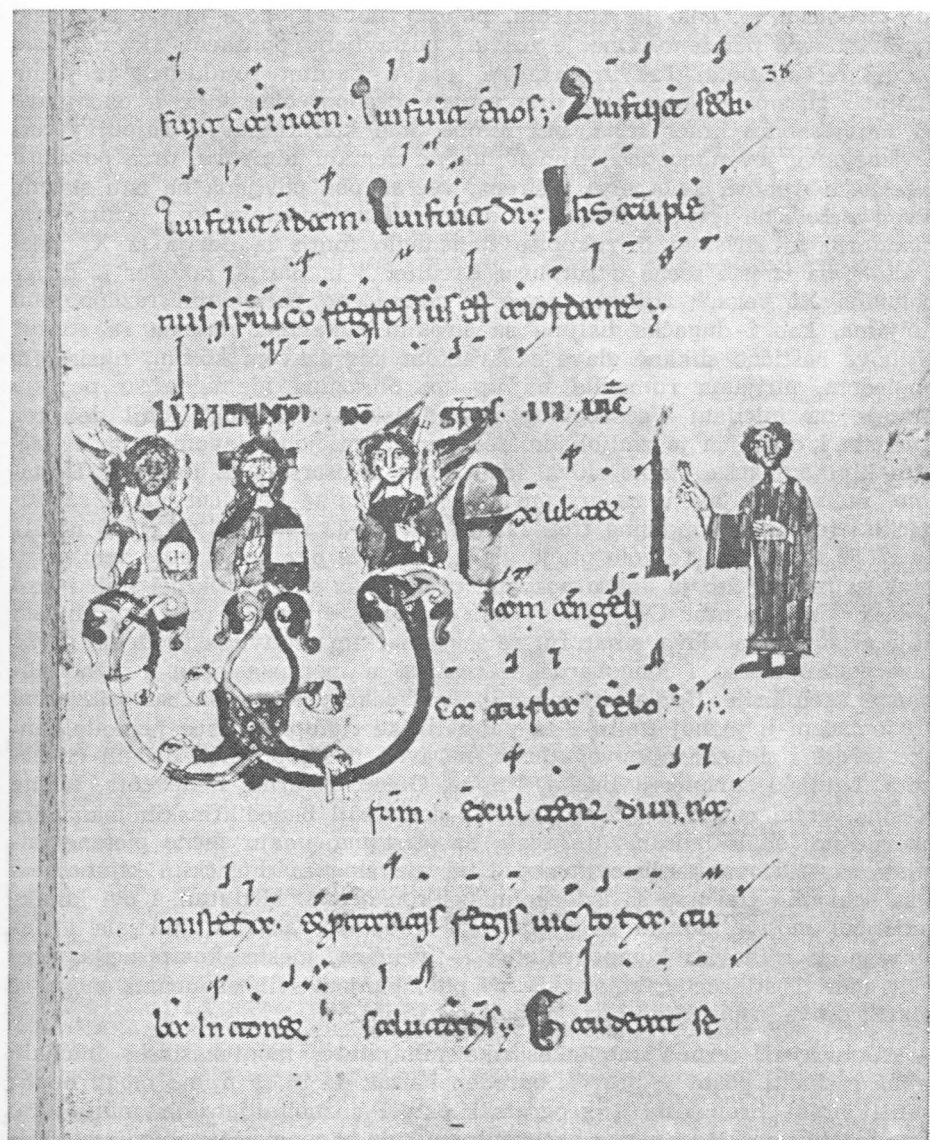 38
fuit Cainan. Qui fuit enos; Qui fuit seth.
Qui fuit Adam. Qui fuit di; Ihs aū ple
nus, spū scō regressus est aiordane;
LUMEN XPI DO GR̄AS. III. UIC̄
Exultet
iam angeli
ca turba celo
rum. exultent diuina
misteria. & p tanti regis uictoria. tu
ba intonet salutaris; Gaudeat se